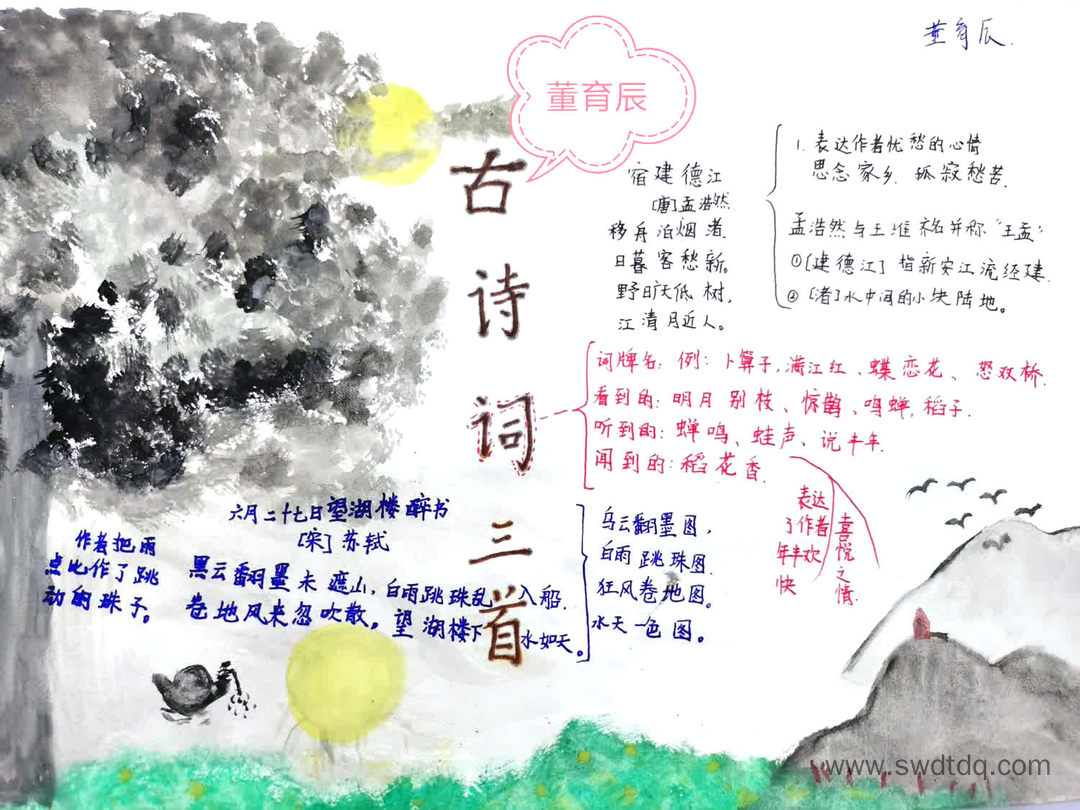 董育辰
董育辰.
古诗词三首
宿建德江
[唐]孟浩然
移舟泊烟渚,
日暮客愁新。
野旷天低树,
江清月近人。
1. 表达作者忧愁的心情
思念家乡 孤寂愁苦.
孟浩然与王维 并称“王孟”
①[建德江] 指新安江流经建
② [渚]水中间的小块陆地。
词牌名: 例: 卜算子,满江红、蝶恋花、怨双桥.
看到的: 明月 别枝、惊鹊、鸣蝉,稻子.
听到的: 蝉鸣、蛙声、说丰年.
闻到的: 稻花香.
表达
了作者
年丰欢
快
喜悦之情
六月二十七日望湖楼醉书
[宋] 苏轼
黑云翻墨未遮山, 白雨跳珠乱入船.
卷地风来忽吹散。望湖楼下水如天。
作者把雨
点比作了跳
动的珠子。
乌云翻墨图,
白雨跳珠图.
狂风卷地图。
水天一色图。
www.swdtdq.com